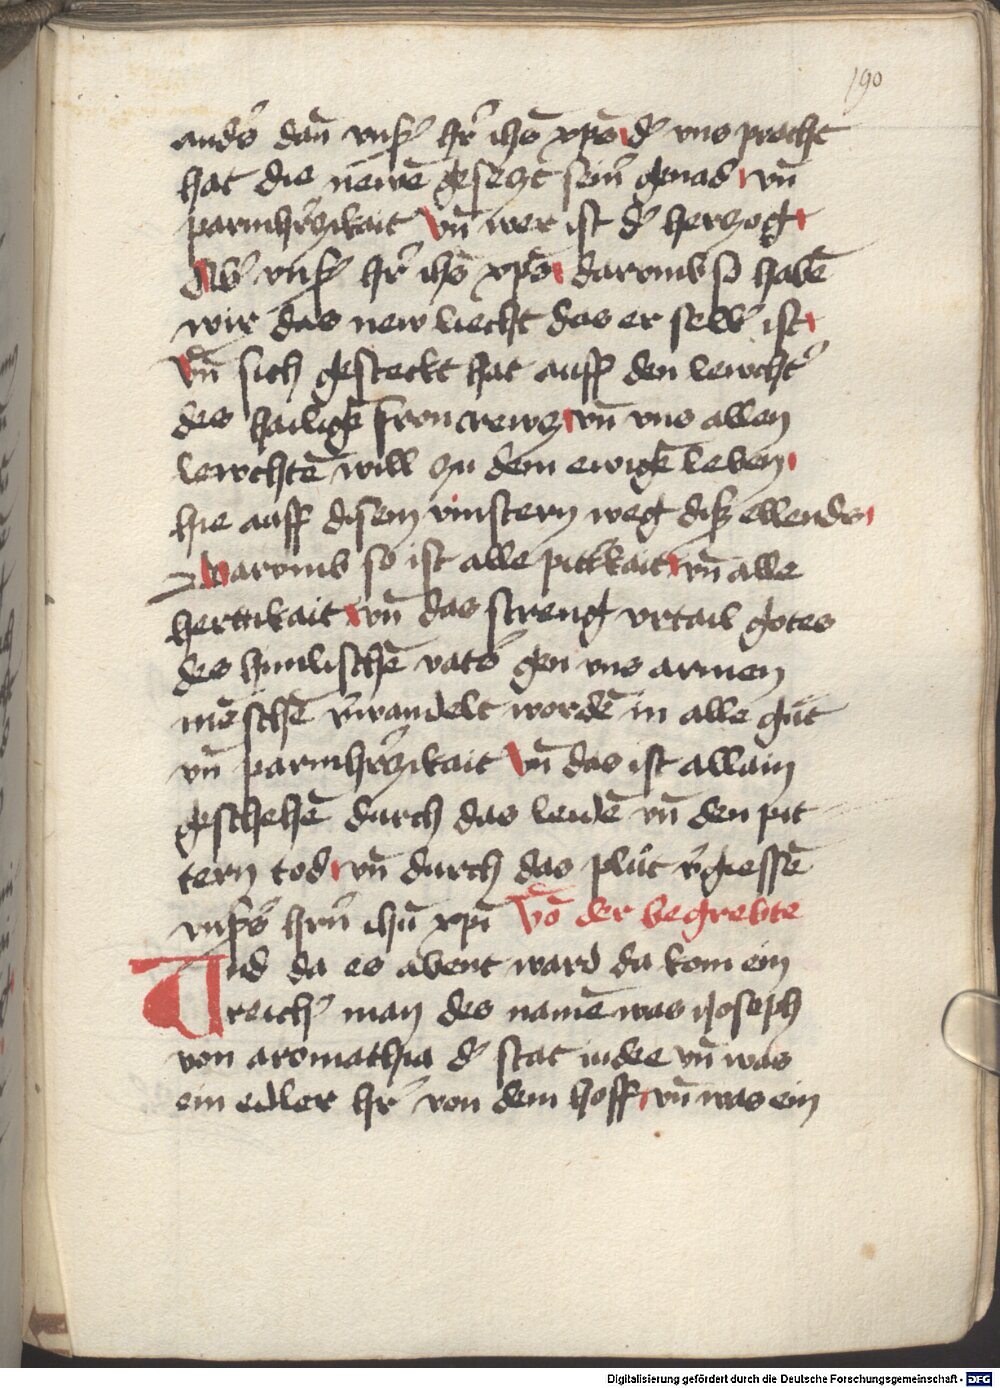 190
anders dañ vnser hr̄ ihs xp̄s d' vns procht
hat die newē gesetzt seinr̄ genad vn̄
parmhr̄czikait Vn̄ wer ist d' herczog
Als vnser hr̄ ihs xp̄s darvmb so habē
wir das new liecht das er selb' ist
Vn̄ sich gesteckt hat auff den lewcht'
des hailigē froncrewcz vn̄ vns allen
lewchtē will zu dem ewigē leben
hie auff disem vinstern weg diß ellends
Darvmb so ist alle pitt'kait vn̄ alle
herttikait vn̄ das streng vrtail gotes
des himlischē vat's gen vns armen
mēschē v'wandelt wordē in alle güt
vn̄ parmhr̄czikait Vn̄ das ist allain
geschehē durch das leidē vn̄ den pit
tern tod vn̄ durch das plůt v'giessē
vnsers hrn̄ ihū xp̄i Vō der begrebte
Und da es abent ward da kom ein
reich' man des namē was ijoseph
von aromathia d' stat iudee vn̄ was
ein edler hr̄ von dem hoff vn̄ was ein
Digitalisierung gefördert durch die Deutsche Forschungsgemeinschaft - DFG